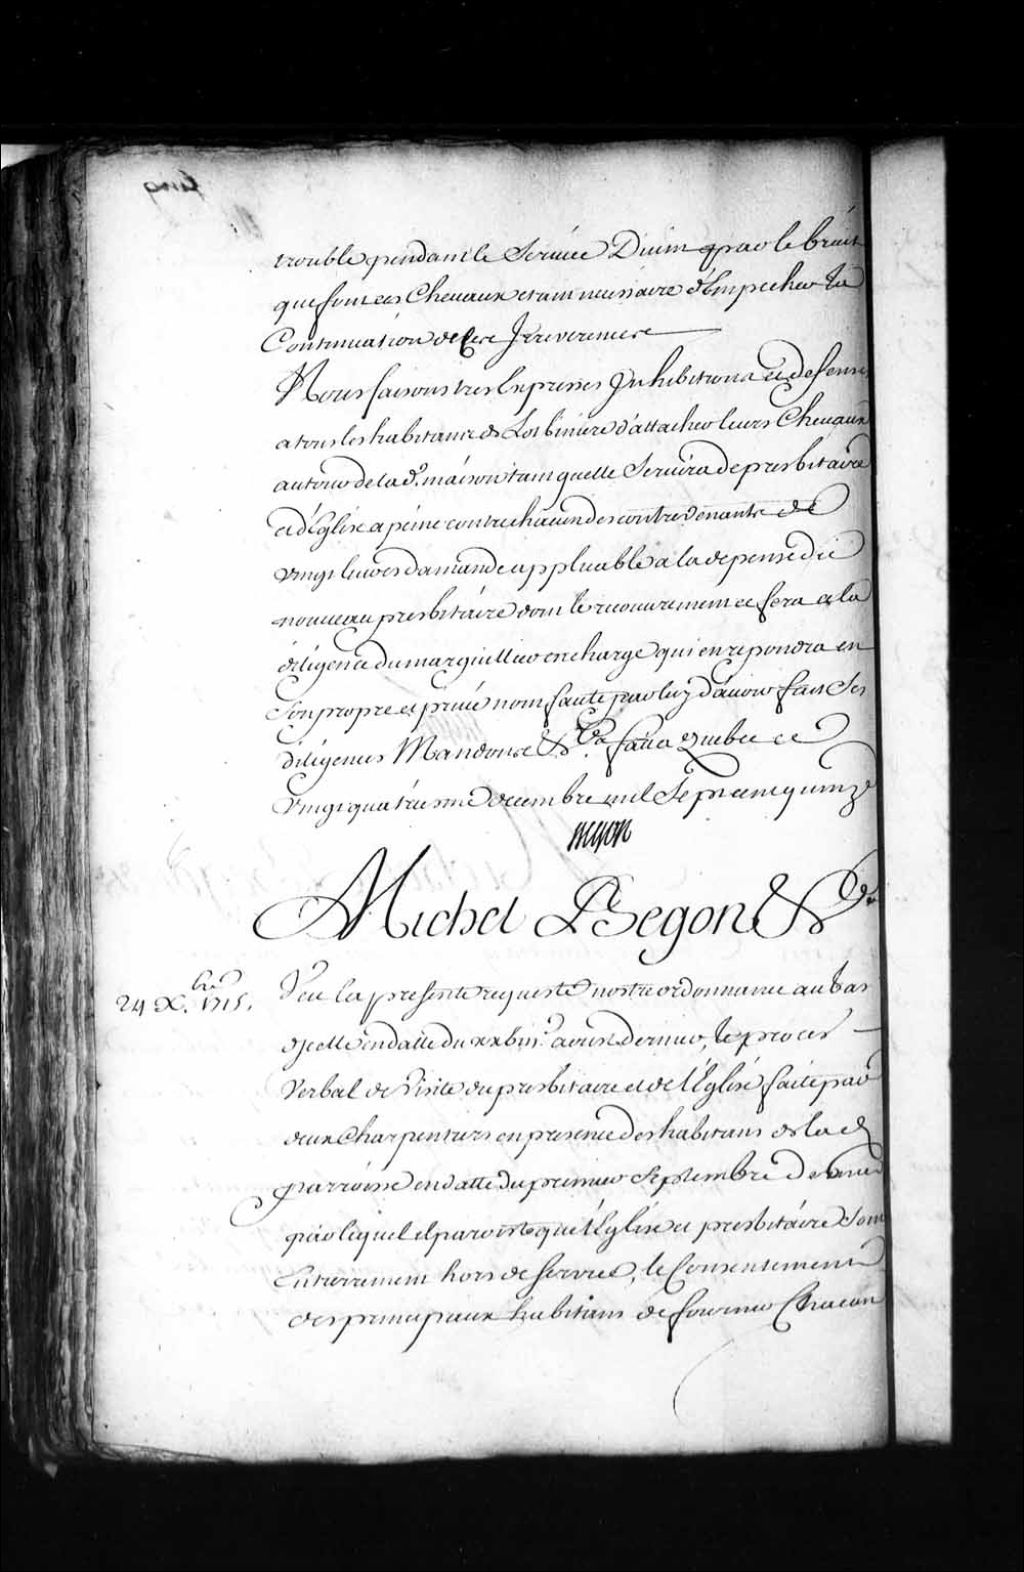 trouble pendant le Service Divin par le bruit
que font ces Chevaux etant necessaire d'Empecher la
Continuation de Irreverences
Nous faisons tres Expresses Inhibitions et defenses
a tous les habitans de Lotbiniere d'attacher leurs Chevaux
autour de lad. maison tant quelle Servira de presbitaire
et d'Eglise a peine contre chacun des contrevenants de
vingt livres damande applicable a la depense du
nouveau presbitaire dont le recouvrement se fera a la
diligence du marguillier en charge qui en repondra en
son propre et privé nom faute par luy d'avoir fait Ses
diligences Mandons &c. fait a Quebec ce
vingt quatriesme decembre mil Sept cent quinze
Begon
Michel Begon &c.
24 Xbre 1715.
Veu la presente requeste nostre ordonnance au bas
dicelle en datte du avril dernier, le proces
verbal de visite du presbitaire et de l'Eglise faite par
deux Charpentiers en presence des habitans de lad
parroisse en datte du premier Septembre dernier
par lequel il paroist que l'Eglise et presbitaire Sont
Entierement hors de service, le Consentement
des principaux habitans de fournir Chacun